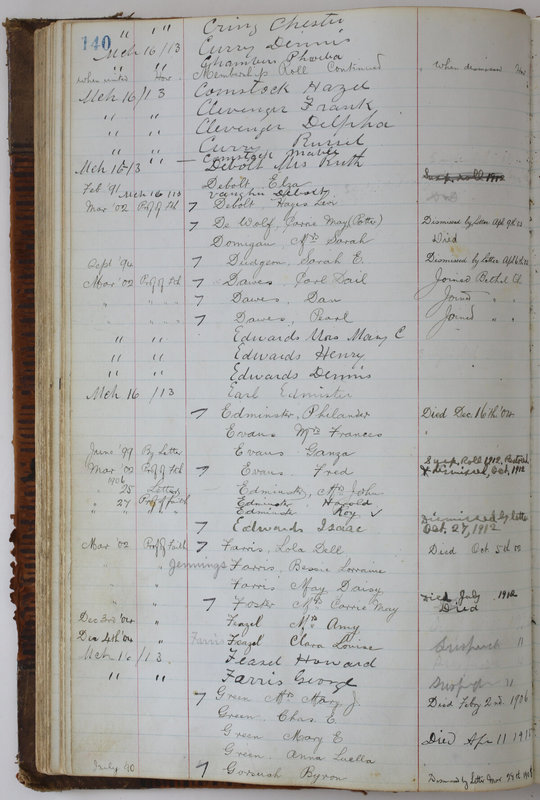 140
" " Cring Chester
Mch 16/13 Curry Dennis
" " Chambers Phoeba
When united How. Membership Roll Continued When dismissed How
Mch 16/13 Comstock Hazel
" " Clevenger Frank
" " Clevenger Delpha
" " Curry Russel
" " Comstock Mable
Mch 16/13 — Debolt Mrs Ruth
Feb. '91 Debolt, Elza Susp. roll 1912
Mch 16/13 Vaughn Debolt
Mar '02 Prof of Fth 7 Debolt Hays Levi
7 De Wolf, Carrie May (Potts) Dismissed by letter Apl 9th 03
Domigan, Mrs Sarah Died
Sept '94 7 Dudgeon, Sarah E. Dismissed by letter Apl 6th 02
Mar '02 Prof of Fth 7 Dawes, Earl Dail Joined Bethel Ch.
" " " " 7 Dawes, Dan Joined " "
7 Dawes, Pearl Joined " "
" " Edwards Mrs Mary C
" " Edwards Henry
" " Edwards Dennis
Mch 16/13 Earl Edmister
7 Edminster, Philander Died Dec 16th '02
Evans Mrs Frances "
June '99 By Letter Evans Ganza Susp. Roll 1912, Restored
Mar '02 Prof of Fth 7 Evans Fred & Dismissed, Oct, 1912
1906
" 25 Letter Edminster, Mrs John
" 27 Prof of Faith Edminster Harold
" " " " Edminster Roy ✓
7 Edwards Isaac Dismissed by letter Oct. 27, 1912
Mar '02 Prof of Faith 7 Farris, Lola Dell Died Oct 5th 02
" " Jennings Farris, Bessie Lorraine
" " Farris May Daisy Died July 1912
" " 7 Foster Mrs Carrie May Died
Dec 3rd '04 " Feazel Mrs Amy
Dec 4th '04 " Farris Feazel Clara Louise Suspended "
Mch 16/13 Feazel Howard
" " Farris George Suspended "
7 Green Mrs Mary J. Died Feby 2nd 1906
Green Chas. E.
Green Mary E Died Apr 11 1915
Green, Anna Luella
July 90 7 Gorsuch Byron Dismissed by letter Mar 28th